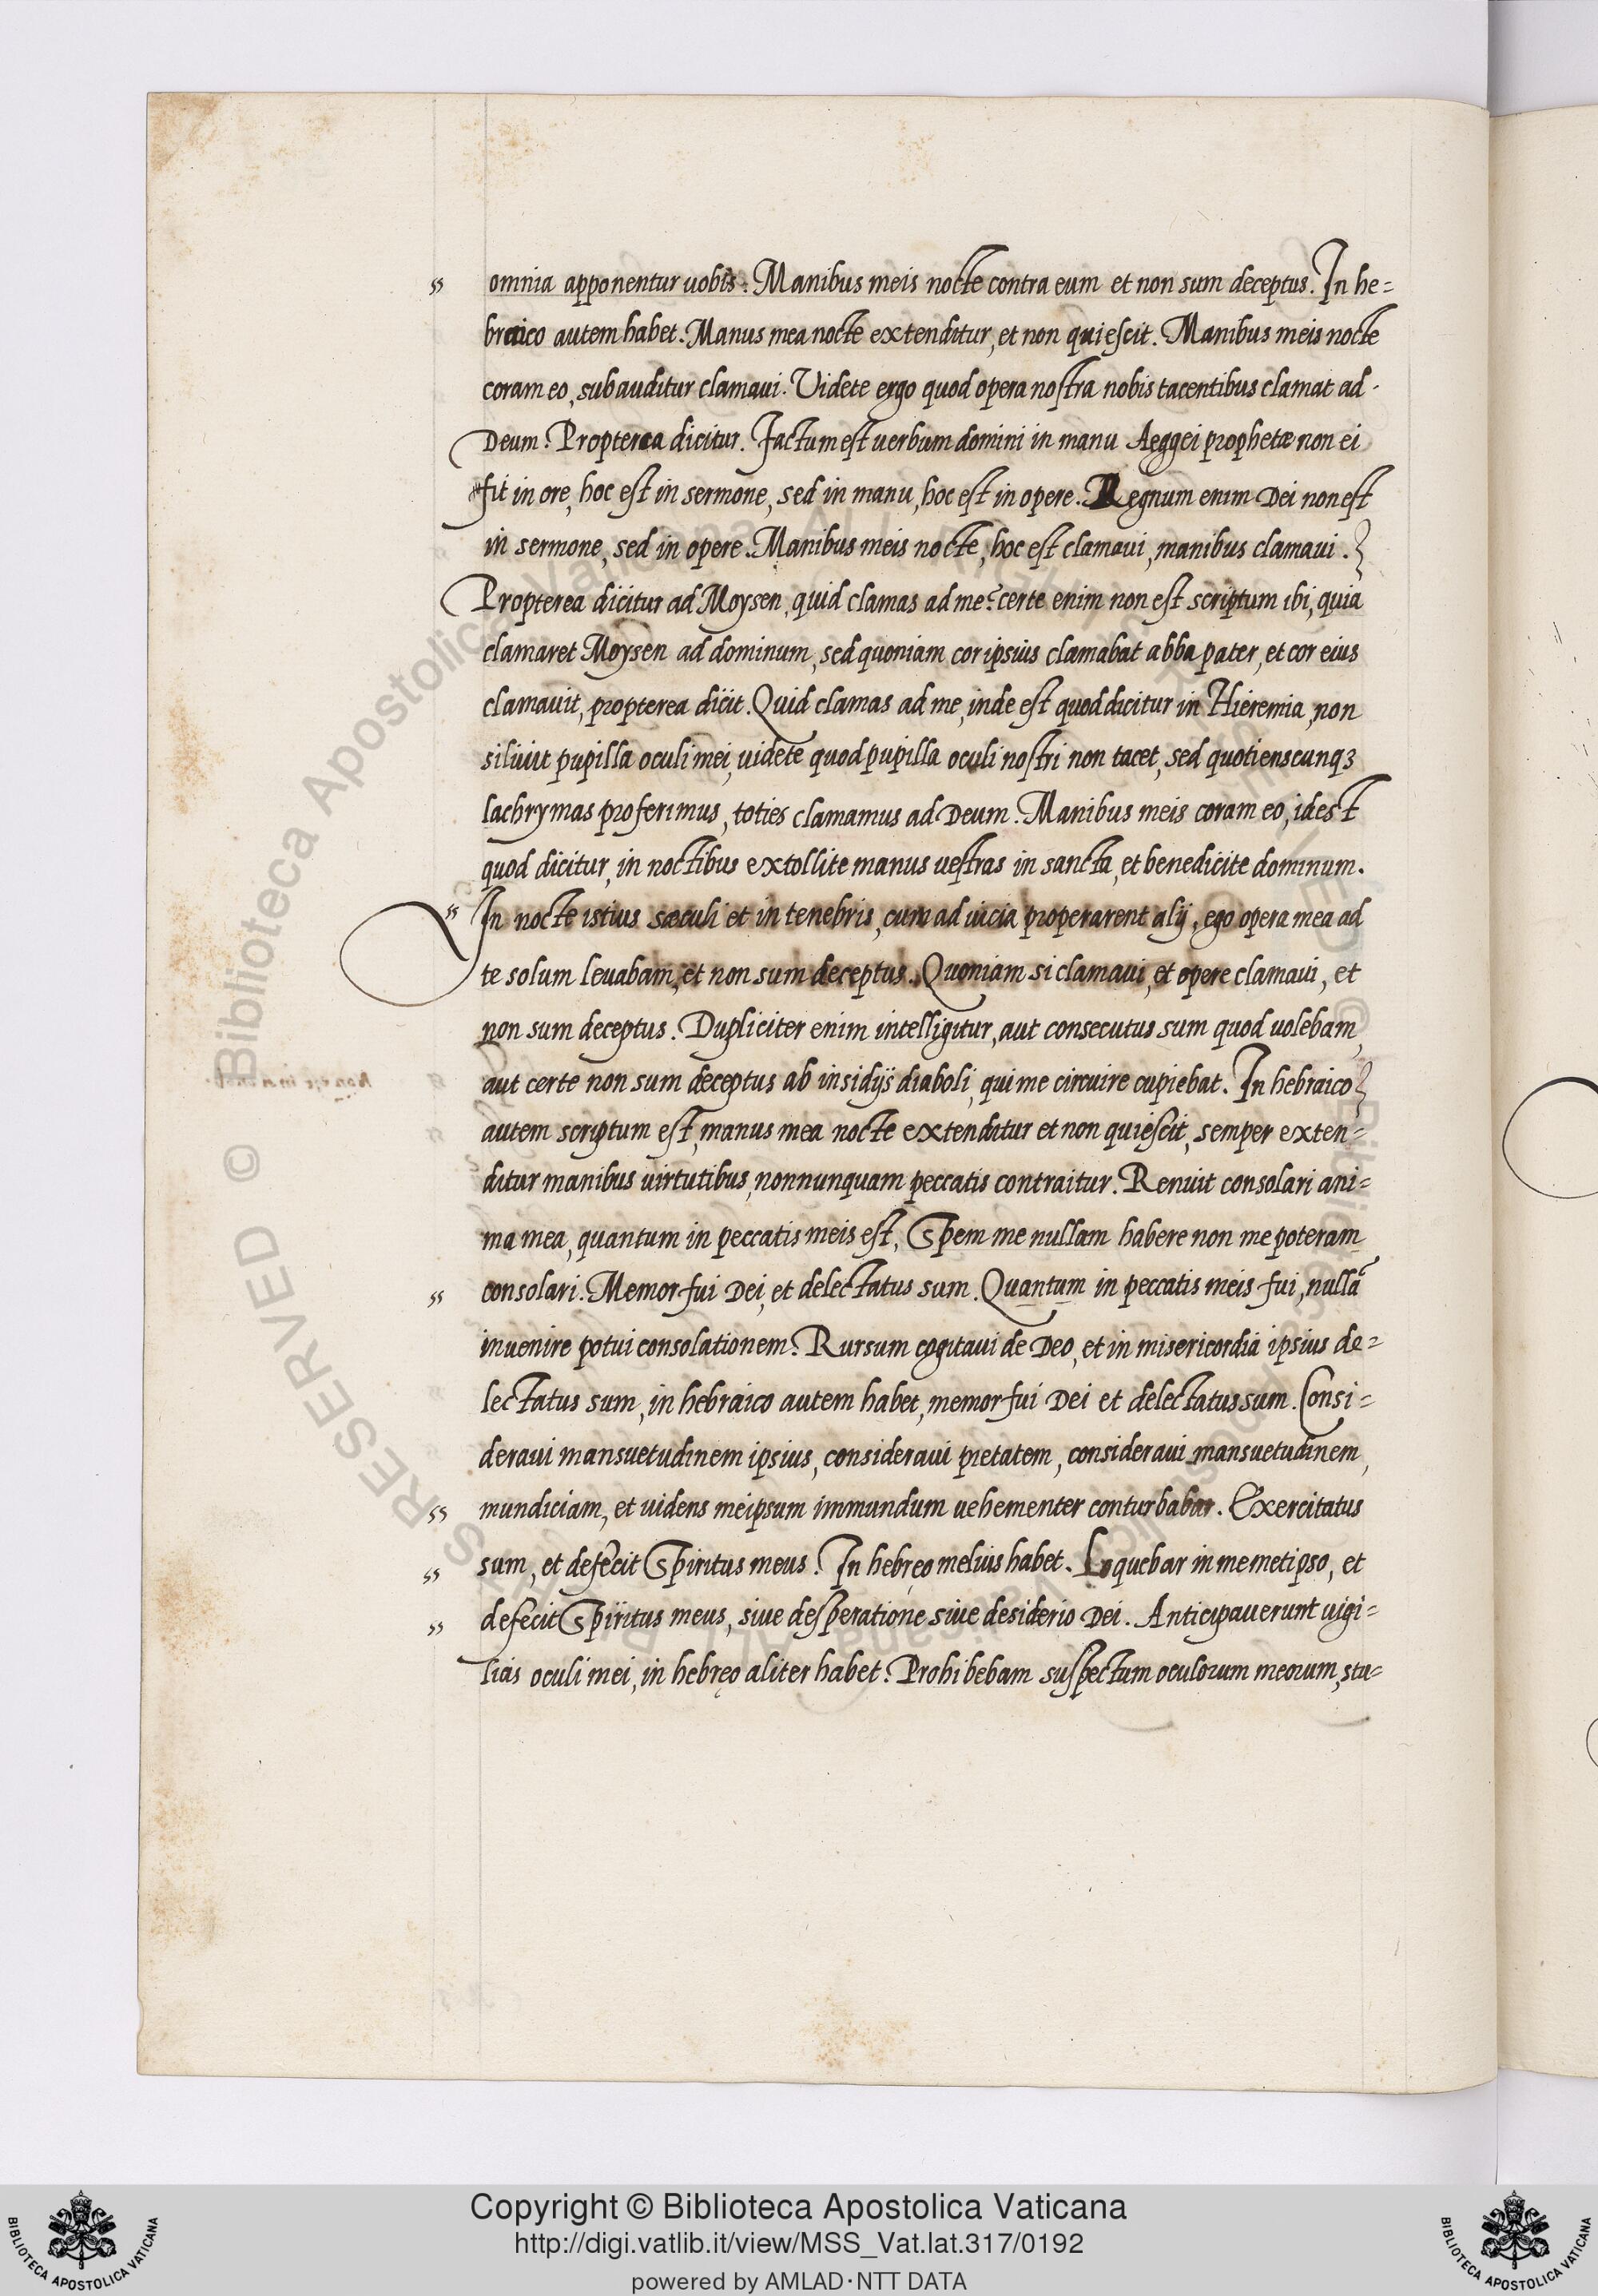 omnia apponentur uobis. Manibus meis nocte contra eum et non sum deceptus. In he=
braico autem habet. Manus mea nocte extenditur, et non quiescit. Manibus meis nocte
coram eo, subauditur clamaui. Videte ergo quod opera nostra nobis tacentibus clamat ad-
Deum. Propterea dicitur. Factum est uerbum domini in manu Aeggei prophetæ non ei
fit in ore, hoc est in sermone, sed in manu, hoc est in opere. Regnum enim Dei non est
in sermone, sed in opere. Manibus meis nocte, hoc est clamaui, manibus clamaui.
Propterea dicitur ad Moysen, quid clamas ad me? certe enim non est scriptum ibi, quia
clamaret Moysen ad dominum, sed quoniam cor ipsius clamabat abba pater, et cor eius
clamauit, propterea dicit. Quid clamas ad me, inde est quod dicitur in Hieremia, non
siluit pupilla oculi mei, uidete quod pupilla oculi nostri non tacet, sed quotienscunqȝ
lachrymas proferimus, toties clamamus ad Deum. Manibus meis coram eo, idest
quod dicitur, in noctibus extollite manus uestras in sancta, et benedicite dominum.
In nocte istius sæculi et in tenebris, cum ad uicia properarent alij, ego opera mea ad
te solum leuabam, et non sum deceptus. Quoniam si clamaui, et opere clamaui, et
non sum deceptus. Dupliciter enim intelligitur, aut consecutus sum quod uolebam,
aut certe non sum deceptus ab insidijs diaboli, qui me circuire cupiebat. In hebraico
autem scriptum est, manus mea nocte extenditur et non quiescit, semper exten=
ditur manibus uirtutibus, nonnunquam peccatis contraitur. Renuit consolari ani=
ma mea, quantum in peccatis meis est, Spem me nullam habere non me poteram
consolari. Memor fui Dei, et delectatus sum. Quantum in peccatis meis fui, nullã
inuenire potui consolationem. Rursum cogitaui de Deo, et in misericordia ipsius de=
lectatus sum, in hebraico autem habet, memor fui Dei et delectatus sum. Consi=
deraui mansuetudinem ipsius, consideraui pietatem, consideraui mansuetudinem,
mundiciam, et uidens meipsum immundum uehementer conturbabar. Exercitatus
sum, et defecit Spiritus meus. In hebręo melius habet. Loquebar in memetipso, et
defecit Spiritus meus, siue desperatione siue desiderio Dei. Anticipauerunt uigi=
lias oculi mei, in hebręo aliter habet. Prohibebam suspectum oculorum meorum, stu=
Copyright © Biblioteca Apostolica Vaticana
http://digi.vatlib.it/view/MSS_Vat.lat.317/0192
powered by AMLAD·NTT DATA